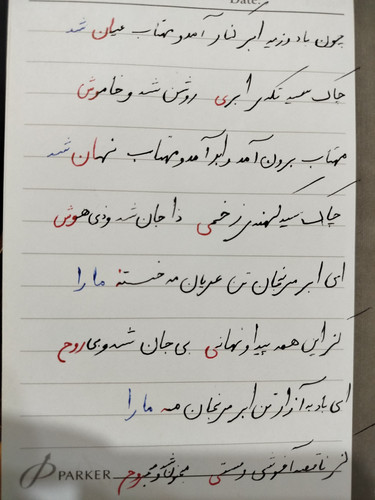 Date:
چون باد وزید ابر کنار آمد و مهتاب عیان شد
چاک سینه تکه ابری روشن شد و خاموش
مهتاب برون آمد و ابر آمد و مهتاب نهان شد
چاک سینه زخمی دا جان شد و بی هوش
ای ابر مرنجان تن عریان مه خسته ما را
کز این همه پیدا و نهانی بی جان شد و بی روح
ای باد به آزار تن ابر مرنجان مه ما را
کز و مجروح
PARKER